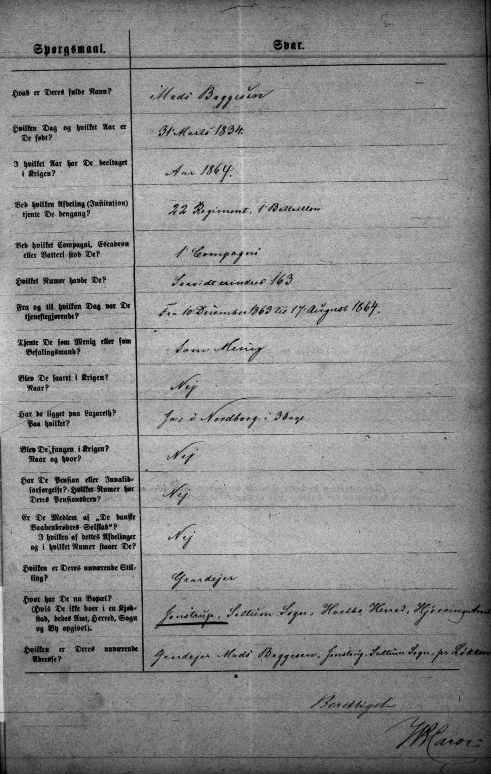 Spørgsmaal. Svar.
Hvad er Deres fulde Navn? Mads Baggesen
Hvilken Dag og hvilket Aar er
De født? 31 Marts 1834.
I hvilket Aar har De deeltaget
i Krigen? Aar 1864.
Ved hvilken Afdeling (Institution)
tjente De dengang? 22 Regiment, 1' Battaillon
Ved hvilket Compagni, Escadron
eller Batteri stod De? 1' Compagni
Hvilket Numer havde De? Saavidt erindres 163
Fra og til hvilken Dag var De
tjenestegjørende? Fra 10 December 1863 til 17 August 1864.
Tjente De som Menig eller som
Befalingsmand? Som Menig
Blev De saaret i Krigen?
Naar? Nej
Har de ligget paa Lazareth?
Paa hvilket? Ja, i Nordborg i 3 Dage
Blev De fangen i Krigen?
Naar og hvor? Nej
Har De Pension eller Invalid-
forsørgelse? Hvilket Numer har
Deres Pensionsbrev? Nej
Er De Medlem af „De danske
Vaabenbrødres Selskab"?
I hvilken af dettes Afdelinger
og i hvilket Numer staaer De? Nej
Hvilken er Deres nuværende Stil-
ling? Gaardejer
Hvor har De nu Bopæl?
(Hvis De ikke boer i en Kjøb-
stad, bedes Amt, Herred, Sogn
og By opgivet). Jonstrup, Saltum Sogn, Hvetbo Herred, Hjørring Amt
Hvilken er Deres nuværende
Adresse? Gaardejer Mads Baggesen, Saltum Sogn, pr Løkken
Berettiget